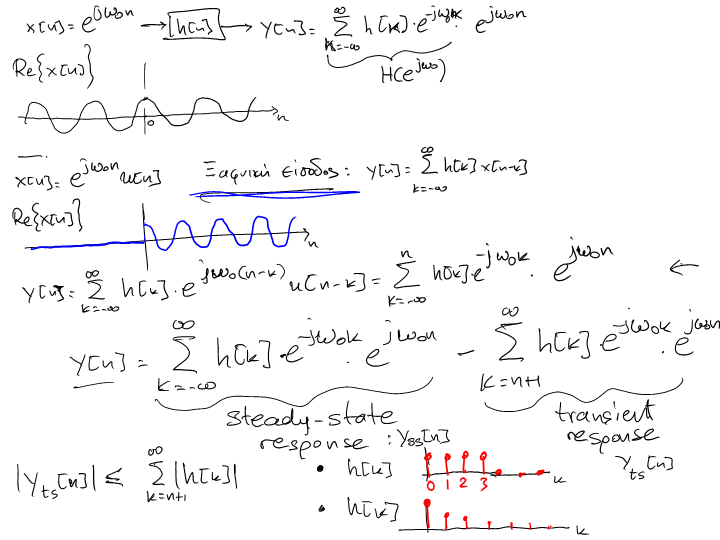 x[n] = e^{jω₀n} → [h[n]] → y[n] = \sum_{k=-∞}^{∞} h[k] · e^{-jω₀k} · e^{jω₀n}
H(e^{jω₀})
Re{x[n]}
0 n
x[n] = e^{jω₀n} u[n] Ξαφνική είσοδος: y[n] = \sum_{k=-∞}^{∞} h[k] x[n-k]
Re{x[n]}
n
y[n] = \sum_{k=-∞}^{∞} h[k] · e^{jω₀(n-k)} u[n-k] = \sum_{k=-∞}^{n} h[k] e^{-jω₀k} · e^{jω₀n} ←
y[n] = \sum_{k=-∞}^{∞} h[k] · e^{-jω₀k} · e^{jω₀n} - \sum_{k=n+1}^{∞} h[k] e^{-jω₀k} · e^{jω₀n}
steady-state response : y_{ss}[n]
transient response y_{ts}[n]
|y_{ts}[n]| ≤ \sum_{k=n+1}^{∞} |h[k]|
• h[k] 0 1 2 3 k
• h[k] k